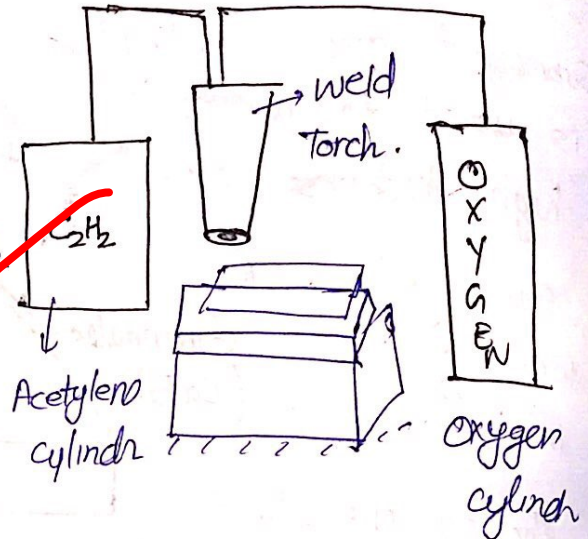 weld
Torch.
C₂H₂
OXYGEN
Acetyleno
cylindr
Oxygen
cylindr